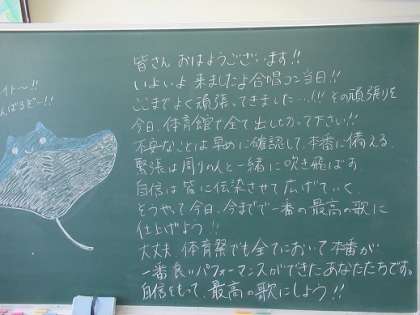 イトー!!
んばるぞー!!
皆さん おはようございます!!
いよいよ 来ましたよ合唱コン当日!!
ここまでよく頑張ってきました…!!! その頑張りを
今日、体育館で全て出し切って下さい!!
不安なことは早めに確認して、本番に備える。
緊張は周りの人と一緒に吹き飛ばす。
自信は皆に伝染させて広げていく。
そうやって今日、今までで一番の最高の歌に
仕上げよう!!
大丈夫。体育祭でも全てにおいて本番が
一番良いパフォーマンスができたあなたたちです。
自信をもって、最高の歌にしよう!!